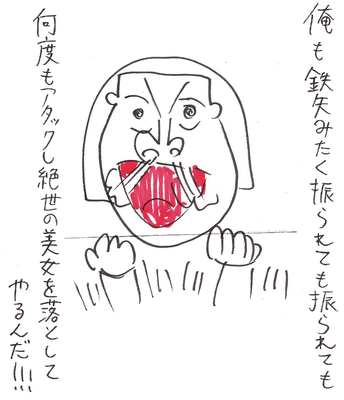 俺も鉄矢みたく振られても振られても
何度もアタックし絶世の美女を落として
やるんだ!!!